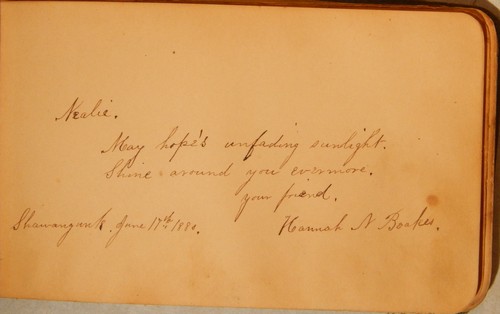 Nealie.
May hope's unfading sunlight.
Shine around you evermore.
your friend.
Shawangunk. June 17th 1880.
Hannah N Boakes.